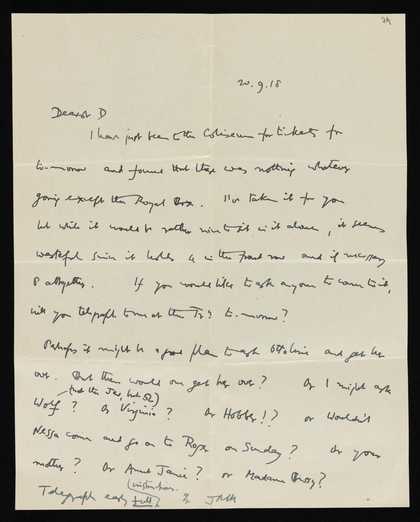 20.9.18
Dearest D
I have just been to the Coliseum for tickets for
to-morrow and found that there was nothing whatever
going except the Royal Box. I've taken it for you
but while it would be rather nice to sit in it alone, it seems
wasteful since it holds 4 in the front row and if necessary
8 altogether. If you would like to ask anyone to come to it,
will you telegraph to me at the Try to-morrow?
Perhaps it might be a good plan to ask Ottoline and get her
over. But then would one get her over? Or I might ask
(not the Jew, but OK)
Wolf? Or Virginia? Or Hobber!? or wouldn't
Nessa come and go on to Roger on Sunday? Or your
mother? Or Aunt Janie? or Madame Bussy?
Telegraph early JMK